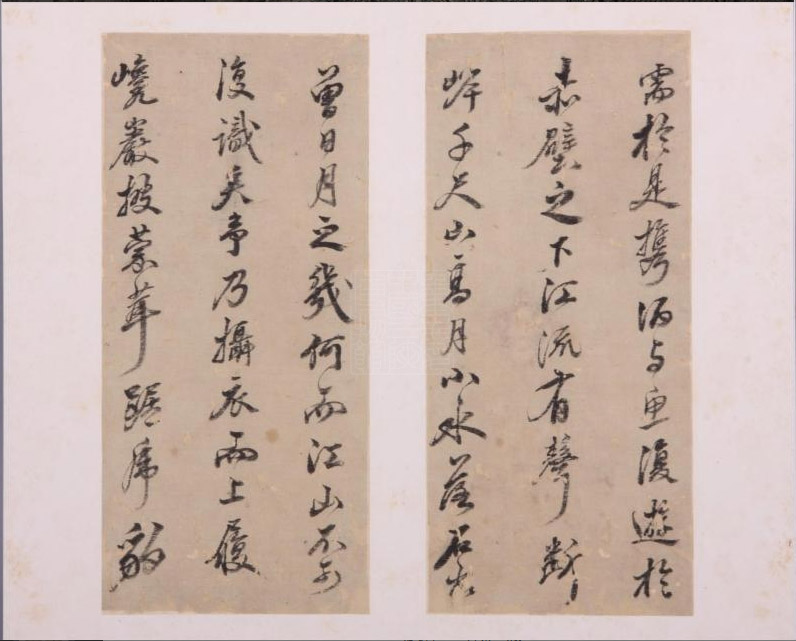 需於是攜酒与魚復遊於
赤壁之下江流有聲斷
岸千尺山高月小水落石出
曾日月之幾何而江山不可
復識矣予乃攝衣而上履
巉巖披蒙茸踞虎豹